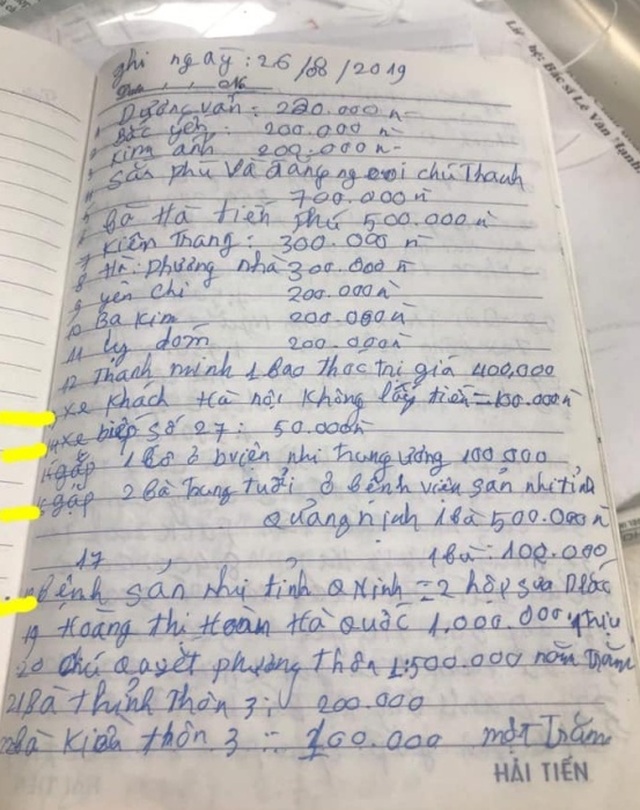 ghi ngày : 26/8/2019
1 Dương văn : 220.000 n
2 Bác yến : 200.000 n
3 Kim anh 200.000 n
4 Sản phụ và đằng ngoại chú Thanh
5 700.000 n
6 Bà Hà tiến phú 500.000 n
7 Kiên Trang : 300.000 n
8 Hà : phương nhà 300.000 n
9 yến chi 200.000 n
10 Ba Kim 200.000 n
11 Ly đom 200.000 n
12 Thanh minh 1 bao thóc trị giá 400,000
xe khách Hà nội không lấy tiền = 100.000 n
xe biển số 27 : 50.000 n
gặp 1 cô ở bviện nhi trung ương 100.000
gặp 2 bà trung tuổi ở bệnh viện sản nhi tỉnh
Quảng ninh 1 bà 500.000 n
17 , , 1 bà : 100.000
Bệnh sản nhi tỉnh Q Ninh = 2 hộp sữa
19 Hoàng Thị Hoàn Hà Quốc 1.000.000 1 triệu
20 chú Quyết phương thôn 1 : 500.000 năm Trăm
21 Bà Thỉnh Thôn 3 : 200.000
Bà Kiên thôn 3 : 100.000 một Trăm
HẢI TIẾN
Bác sĩ Lê Văn